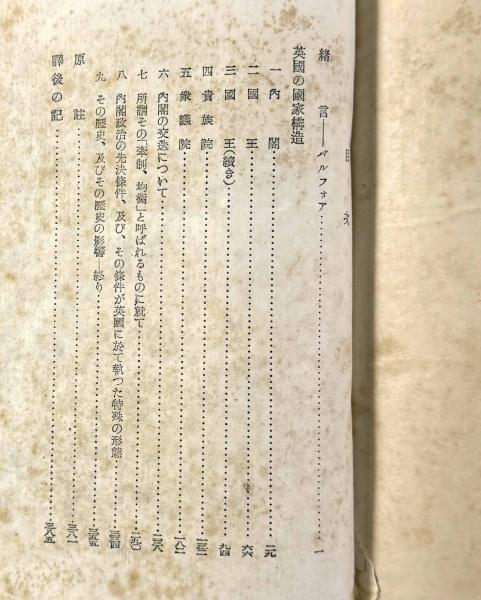 目次
緒言——バルフォア……一
英國の國家構造
一 內閣……二九
二 國王……六六
三 國王(續き)……九四
四 貴族院……一三一
五 衆議院……一八二
六 內閣の交迭について……二三八
七 所謂その「牽制、均衡」と呼ばれるものに就て……二九〇
八 內閣政治の先決條件、及び、その條件が英國に於て執つた特殊の形態……
九 その歷史、及びその歷史の影響—終り……
原註……三八一
譯後の記……三八五